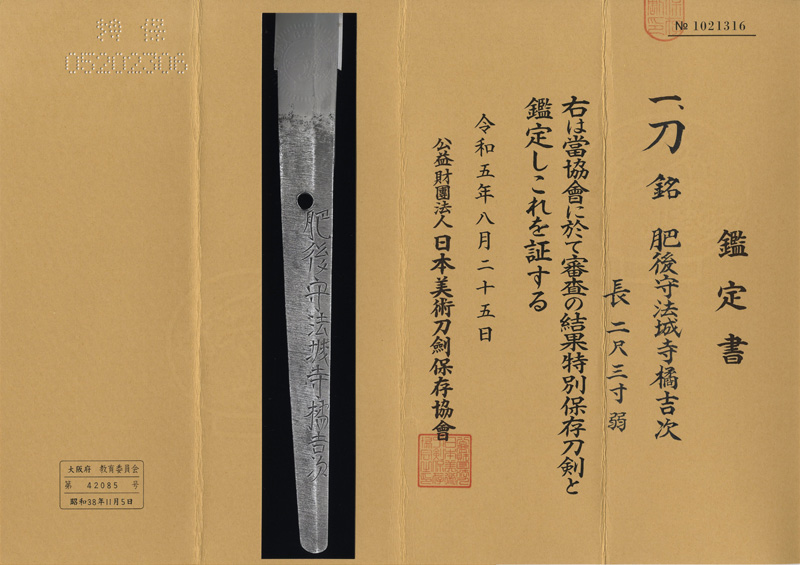 № 1021316
鑑定書
一、刀 銘 肥後守法城寺橘吉次
長 二尺三寸弱
右は當協會に於て審査の結果特別保存刀剣と
鑑定しこれを証する
令和五年八月二十五日
公益財團法人日本美術刀劍保存協會
肥後守法城寺橘吉次
特保
05202306
大阪府 教育委員会
第 42085 号
昭和38年11月5日